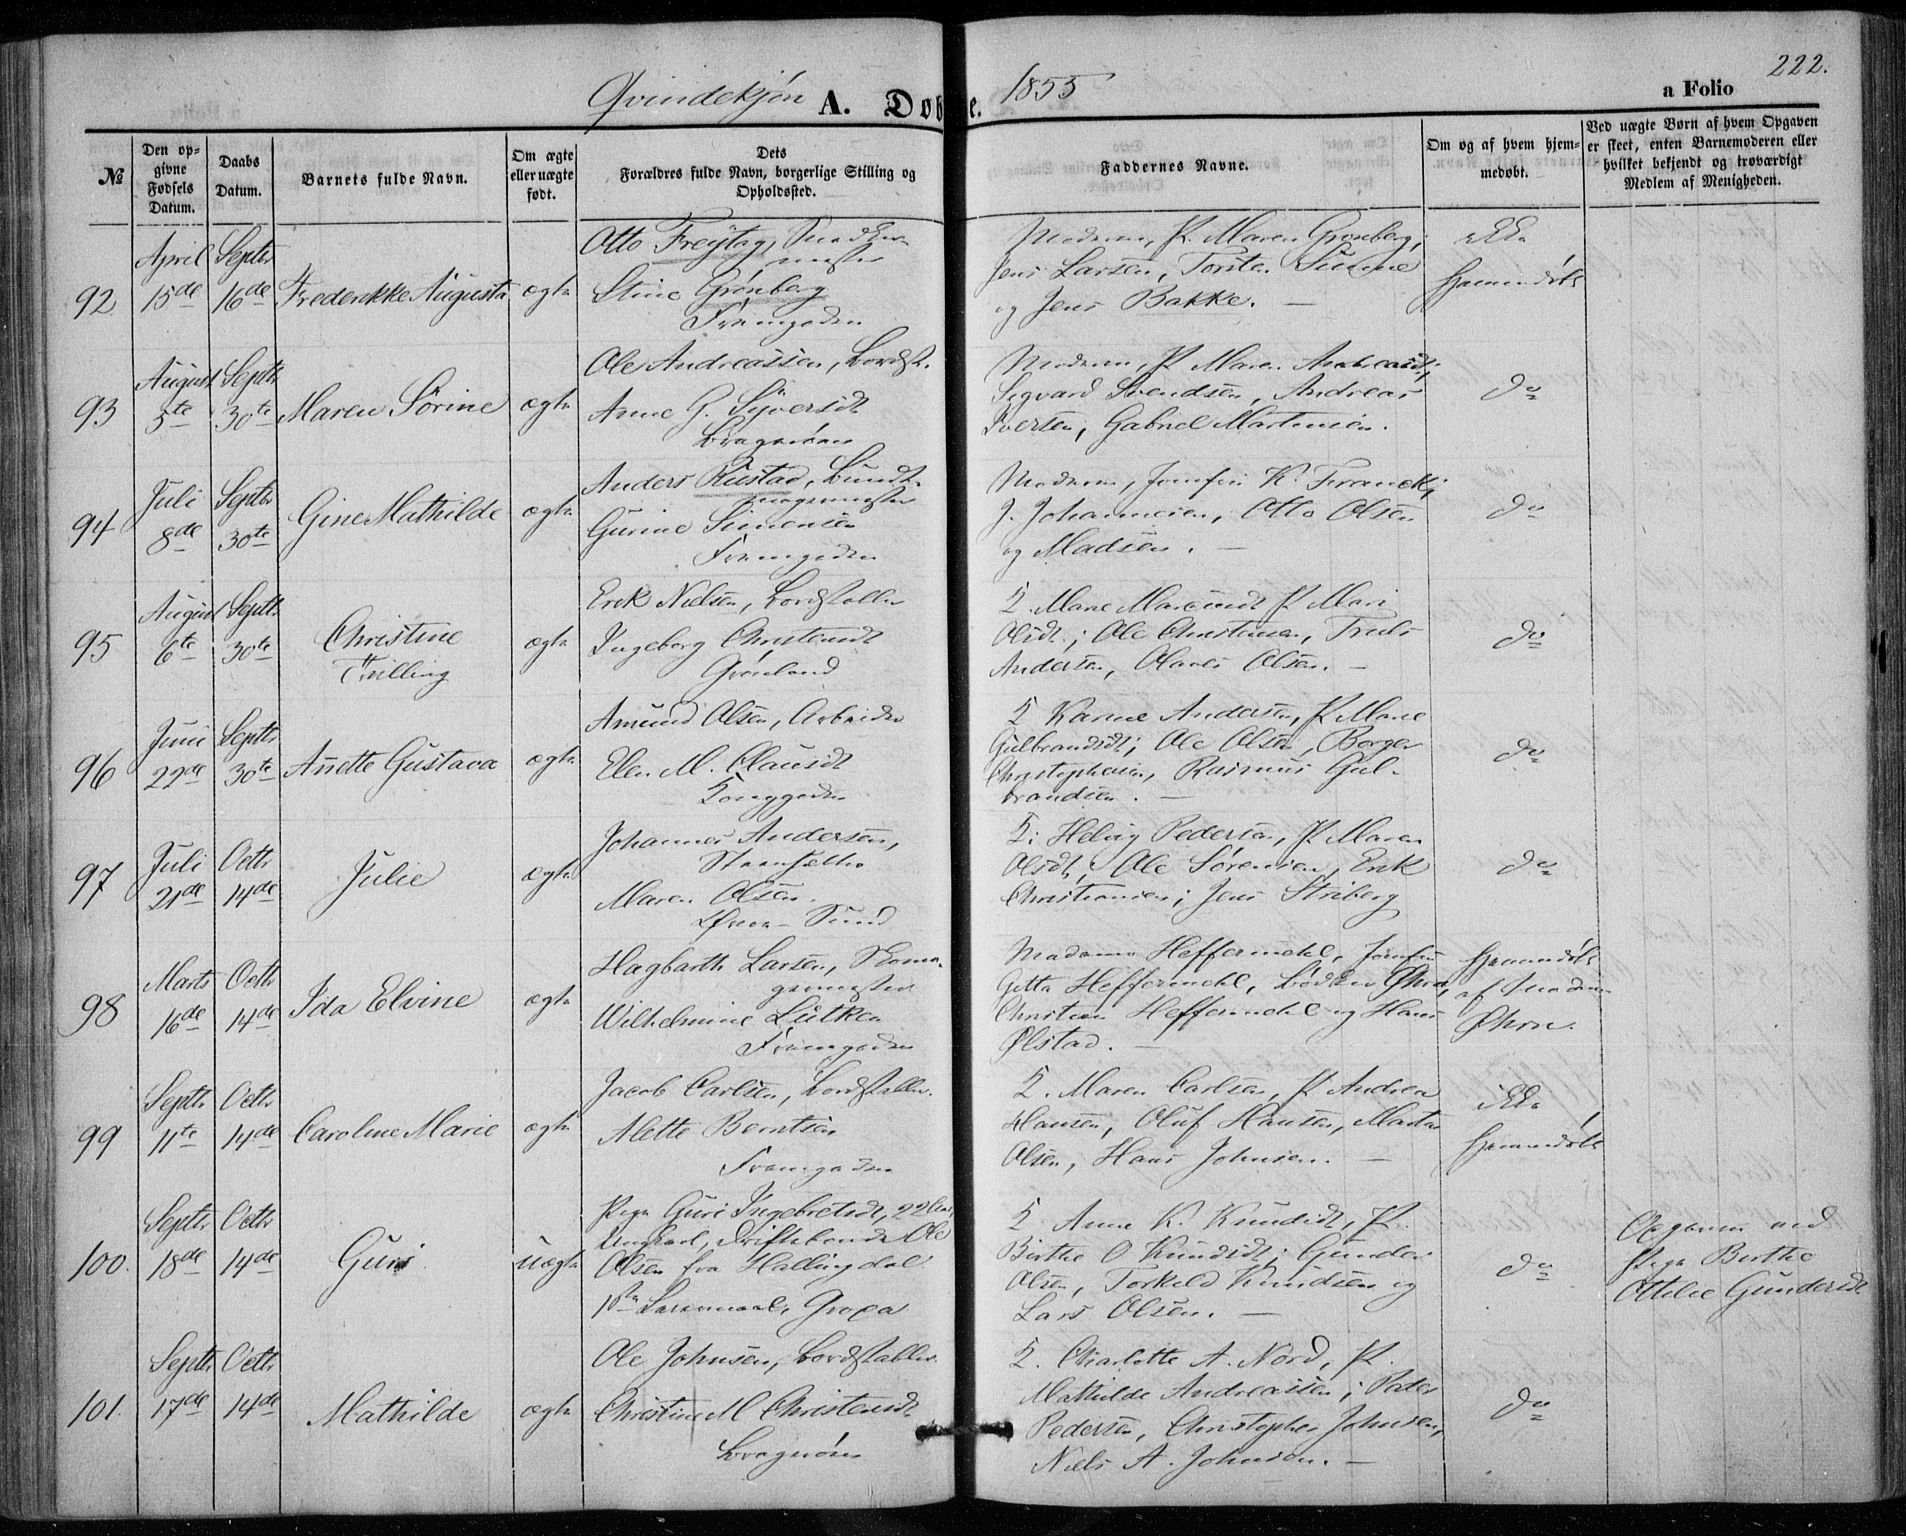 222.
Qvindekjøn A. Døbte. 1855 a Folio
№
Den opgivne Fødsels Datum.
Daabs Datum.
Barnets fulde Navn.
Om ægte eller uægte født.
Dets Forældres fulde Navn, borgerlige Stilling og Opholdssted.
Faddernes Navne.
Om og af hvem hjemmedøbt.
Ved uægte Børn af hvem Opgaven er skeet, enten Barnemoderen eller hvilket bekjendt og troværdigt Medlem af Menigheden.
92
April 15de
Septbr 16de
Frederikke Augusta
ægte
Otto Freytag,
Stine Grönberg
Moderen, P. Maren Grönberg,
Jens Larsen, Torsten
og Jens Bakke. —
ikke
hjemmedøbt
93
August 5te
Septbr 30te
Maren Sørine
ægte
Ole Andreassen,
Anne G. Syversdt
Bragernæs
Moderen, P. Maren Andreasdt;
Sigvard Svendsen, Andreas
Iversen, Gabriel Martinsen.
do
94
Juli 8de
Septbr 30te
Gine Mathilde
ægte
Anders Rustad,
Gurine Simensen
Moderen, Jomfru K. Franck;
J. Johannesen, Otto Olsen
og Madsen. —
do
95
August 6te
Septbr 30te
Christine
Trilling
ægte
Erik Nielsen,
Ingeborg Christensdt
Grønland
Marie P. Mari
Olsdt; Ole Christensen, Truls
Andersen, Olaves Olsen. —
do
96
Juni 22de
Septbr 30te
Anette Gustava
ægte
Amund Olsen, Arbeider
Elen M. Clausdt
Tonggaden
Karine Andersen, P. Marie
Gulbrandsdt; Ole Olsen, Borger
Christophersen, Rasmus Gul-
brandsen. —
do
97
Juli 21de
Octbr 14de
Julie
ægte
Johannes Andersen,
Maren Olsen.
Øvre-Sund
Helvig Pedersen, P. Maren
Olsdt, Ole Sørensen, Erik
Christiansen; Jens Striberg
do
98
Marts 16de
Octbr 14de
Ida Elvine
ægte
Hagbarth Larsen, Skoma-
germester
Wilhelmine Lütken
Madame Heffermehl, Jomfru
Getta Heffermehl, Bødker Øhrn,
Christian Heffermehl og Hans
Ølstad. —
hjemmedøbt
af Madam
Øhrn.
99
Septbr 11te
Octbr 14de
Caroline Marie
ægte
Jacob Carlsen,
Alette Berntsen
Maren Carlsen, P. Andrea
Hansen, Oluf Hansen, Martin
Olsen, Hans Johnsen. —
ikke
hjemmedøbt
100.
Septbr 18de
Octbr 14de
Guri
uægte
Pige Guri Ingebretsdt, 22
Ungkarl, Ole
Olsen fra Hallingdal
1ste Leiermaal,
Anne K. Knudsdt, P.
Birthe O Knudsdt; Gunder
Olsen, Torkild Knudsen og
Lars Olsen. —
do
Opgaven ved
Pige Birthe
Ottilie Gundersdt
101.
Septbr 17de
Octbr 14de
Mathilde
ægte
Ole Johnsen,
Christine M Christensdt
Bragernæs
Charlotte A. Nord, P.
Mathilde Andreassen; Peder
Pedersen, Christopher Johnsen,
Niels A. Johnsen. —
do